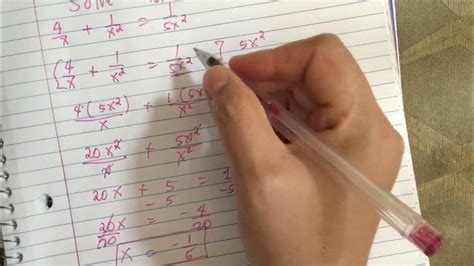 Solve
4/x + 1/x² = 1/5x²
[4/x + 1/x² = 1/5x² ] 5x²
4(5x²)/x + 1(5x²)/x²
20x²/x + 5x²/x²
20x + 5 = 1
- 5 -5
20x/20 = -4/20
x = -1/5